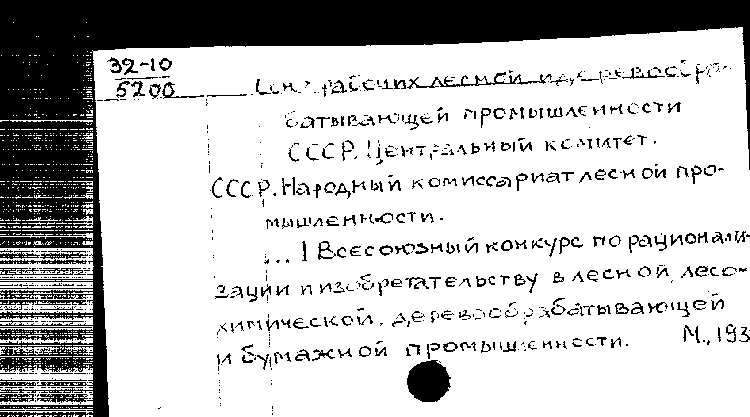 32-10
5200
рабочих лесной и деревообра-
батывающей промышленности
СССР. Центральный комитет.
СССР. Народный комиссариат лесной про-
мышленности.
... I Всесоюзный конкурс по рационали-
зации и изобретательству в лесной, лесо-
химической, деревообрабатывающей
и бумажной промышленности. М., 193